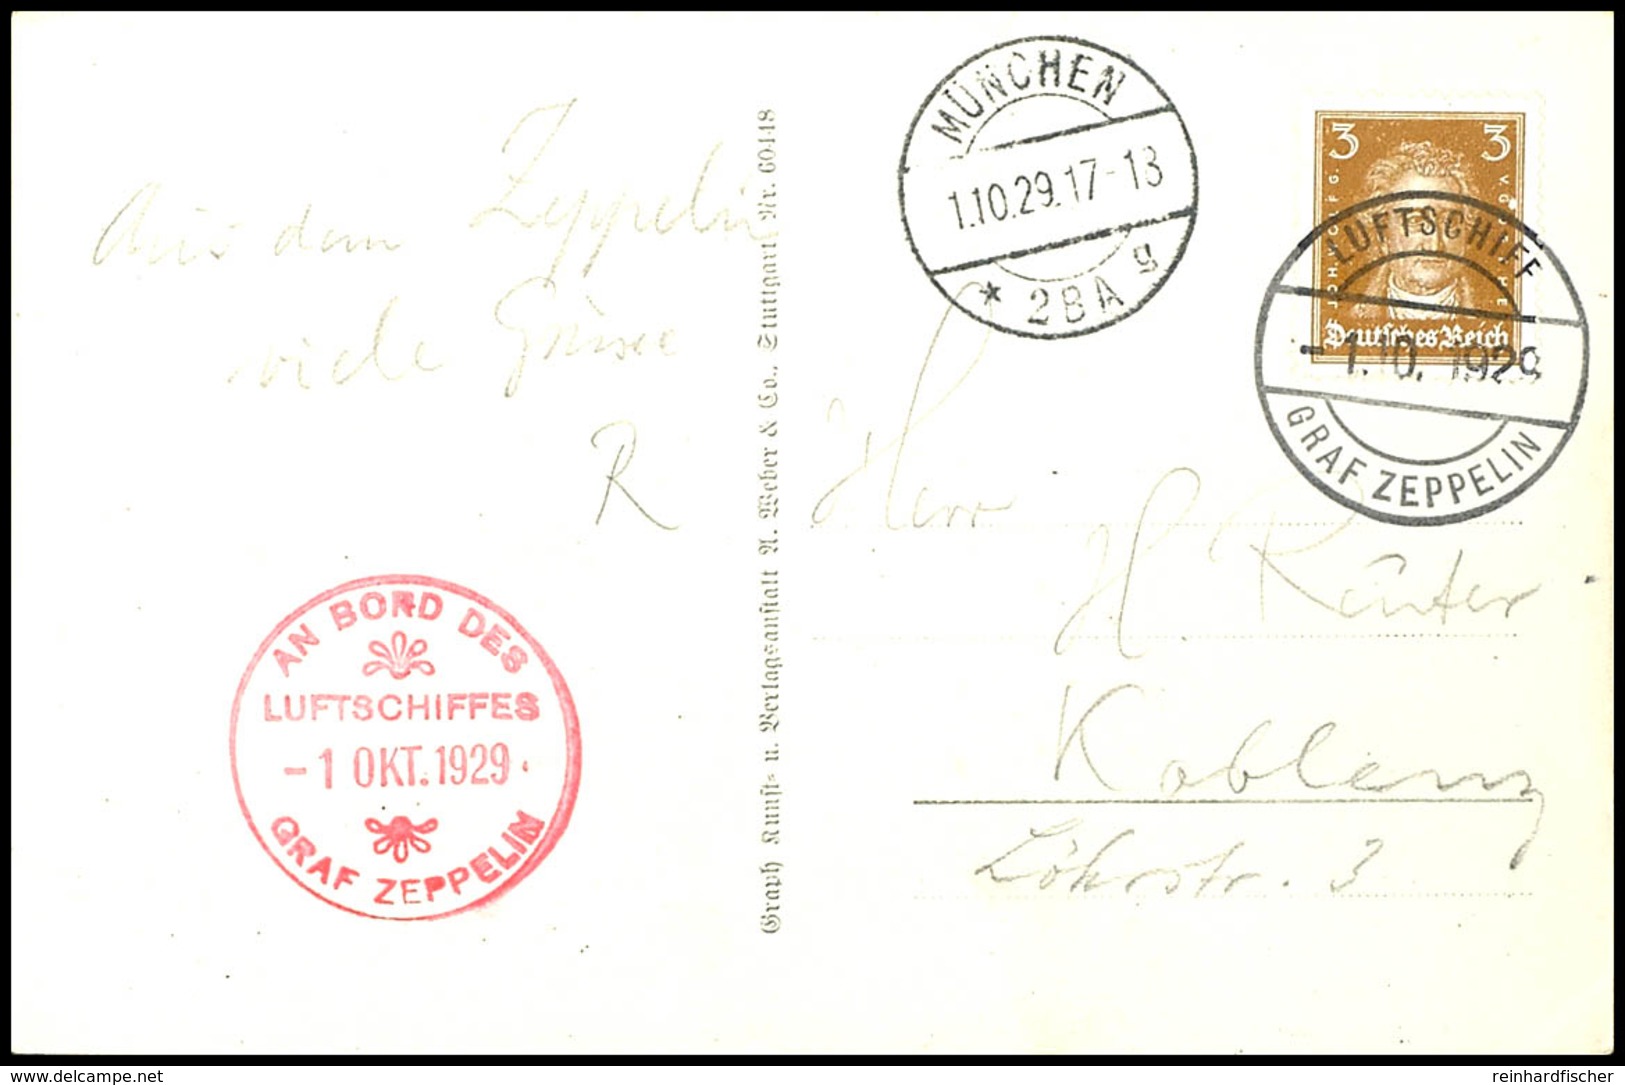 Aus dem Zeppelin
viele Grüsse
R
AN BORD DES
LUFTSCHIFFES
- 1 OKT. 1929
GRAF ZEPPELIN
Graph Kunst- u. Verlagsanstalt A. Weber & Co., Stuttgart Nr. 60448
MÜNCHEN
1.10.29.17-18
* 2BA g
3 3
JOH. WOLFG. V. GOETHE
Deutsches Reich
LUFTSCHIFF
- 1.10. 1929
GRAF ZEPPELIN
Herr
H Rüter
Koblenz
Löhrstr. 3
delcampe.net
reinhardfischer